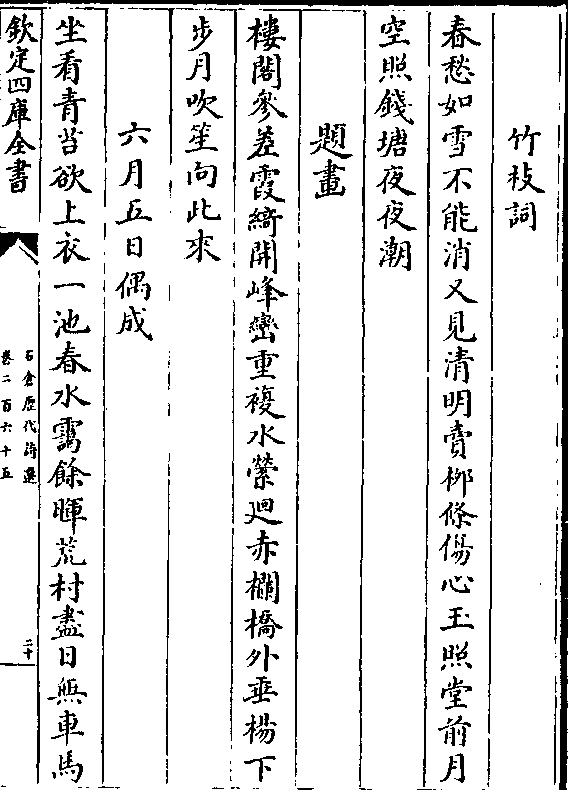 竹枝詞
春愁如雪不能消又見清明賣柳條傷心玉照堂前月
空照錢塘夜夜潮
題畫
樓閣參差霞綺開峰巒重複水縈迴赤欄橋外垂楊下
步月吹笙向此來
六月五日偶成
坐看青苔欲上衣一池春水靄餘暉荒村盡日無車馬
欽定四庫全書
石倉歷代詩選
卷二百六十五
二十